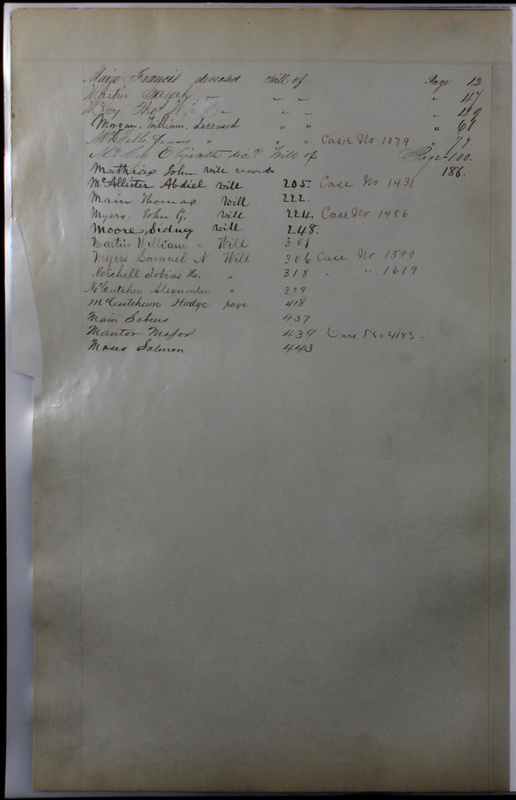 Maize Francis deceased Will of Page 13
Martin Sarah " " " " 117
" " " 119
Morgan, William, deceased " " " 69
" " " Case No 1079 " 79
Elizabeth dec'd Will of Page 100.
Mathias John will record 186.
McAllister Abdiel will 205. Case No 1431
Main Thomas will 222.
Myers, John G. will 224. Case No. 1486
Moore, Sidney will 248.
Martin William " Will 301
Myers Samuel N Will 306 Case No. 1599
Mitchell Tobias " 318 " " 1619
McCutchen Alexander " 379
McCutcheon Hodge page 418
Main Sabeus 437
Mantor Major 439. Case No 4143-
Moses Salmon 443